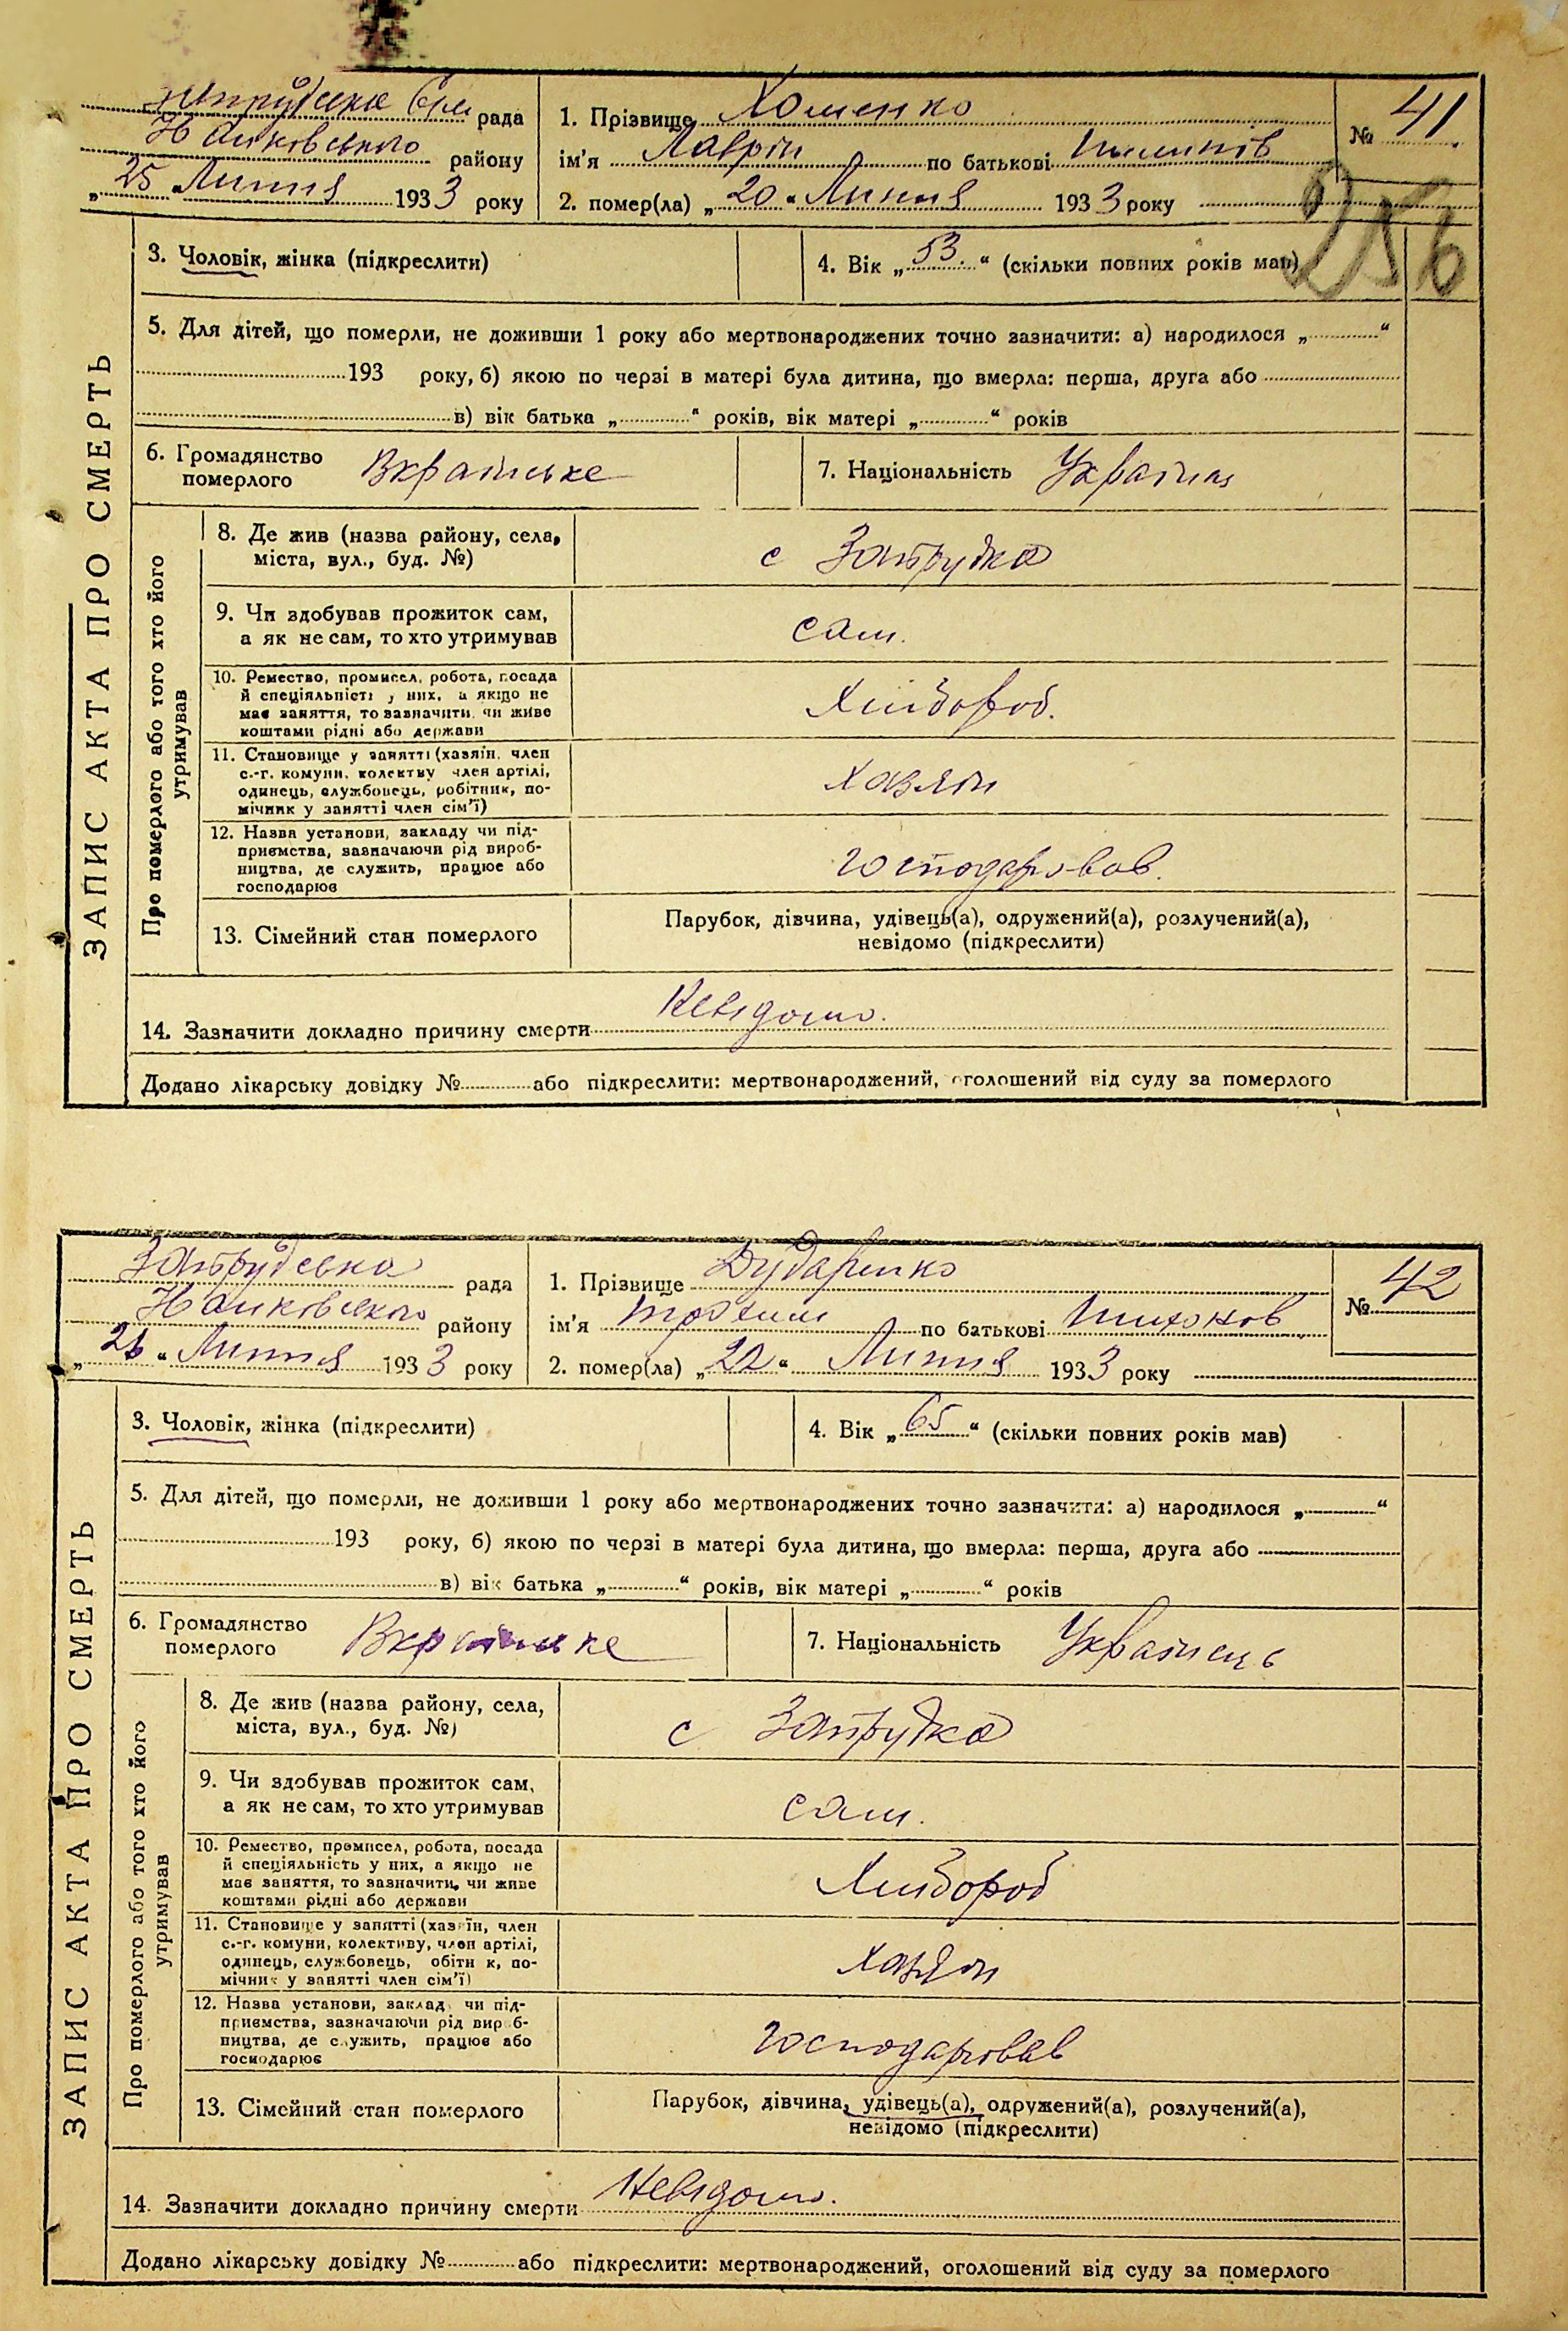 Запрудська Сіль рада
району
„25“ Липня 1933 року
1. Прізвище Хоменко
ім'я Лаврін по батькові
№ 41
2. помер(ла) „20“ Липня 1933 року
256
3. Чоловік, жінка (підкреслити)
4. Вік „53.“ (скільки повних років мав)
5. Для дітей, що померли, не доживши 1 року або мертвонароджених точно зазначити: а) народилося „ “
193 року, б) якою по черзі в матері була дитина, що вмерла: перша, друга або
в) вік батька „ “ років, вік матері „ “ років
6. Громадянство
померлого Вкраїнське
7. Національність
ЗАПИС АКТА ПРО СМЕРТЬ
Про померлого або того хто його
утримував
8. Де жив (назва району, села,
міста, вул., буд. №)
с Запрудка
9. Чи здобував прожиток сам,
а як не сам, то хто утримував
сам.
10. Ремество, промисел, робота, посада
й спеціяльність у них, а якщо не
має заняття, то зазначити, чи живе
коштами рідні або держави
Хлібороб.
11. Становище у занятті (хазяїн, член
с.-г. комуни, колективу член артілі,
одинець, службовець, робітник, по-
мічник у занятті член сім'ї)
Хазяїн
12. Назва установи, закладу чи під-
приємства, зазначаючи рід вироб-
ництва, де служить, працює або
господарює
господарював.
13. Сімейний стан померлого
Парубок, дівчина, удівець(а), одружений(а), розлучений(а),
невідомо (підкреслити)
14. Зазначити докладно причину смерти Невідомо.
Додано лікарську довідку № або підкреслити: мертвонароджений, оголошений від суду за померлого
Запрудська рада
району
„26“ Липня 1933 року
1. Прізвище Дударенко
ім'я Трохим по батькові Тихонов
№ 42
2. помер(ла) „22“ Липня 1933 року
3. Чоловік, жінка (підкреслити)
4. Вік „65“ (скільки повних років мав)
5. Для дітей, що померли, не доживши 1 року або мертвонароджених точно зазначити: а) народилося „ “
193 року, б) якою по черзі в матері була дитина, що вмерла: перша, друга або
в) вік батька „ “ років, вік матері „ “ років
6. Громадянство
померлого Вкраїнське
7. Національність Українець
ЗАПИС АКТА ПРО СМЕРТЬ
Про померлого або того хто його
утримував
8. Де жив (назва району, села,
міста, вул., буд. №)
с Запрудка
9. Чи здобував прожиток сам,
а як не сам, то хто утримував
сам.
10. Ремество, промисел, робота, посада
й спеціяльність у них, а якщо не
має заняття, то зазначити, чи живе
коштами рідні або держави
Хлібороб
11. Становище у занятті (хазяїн, член
с.-г. комуни, колективу, член артілі,
одинець, службовець, робітник, по-
мічник у занятті член сім'ї)
Хазяїн
12. Назва установи, закладу чи під-
приємства, зазначаючи рід вироб-
ництва, де служить, працює або
господарює
господарював
13. Сімейний стан померлого
Парубок, дівчина, удівець(а), одружений(а), розлучений(а),
невідомо (підкреслити)
14. Зазначити докладно причину смерти Невідомо.
Додано лікарську довідку № або підкреслити: мертвонароджений, оголошений від суду за померлого